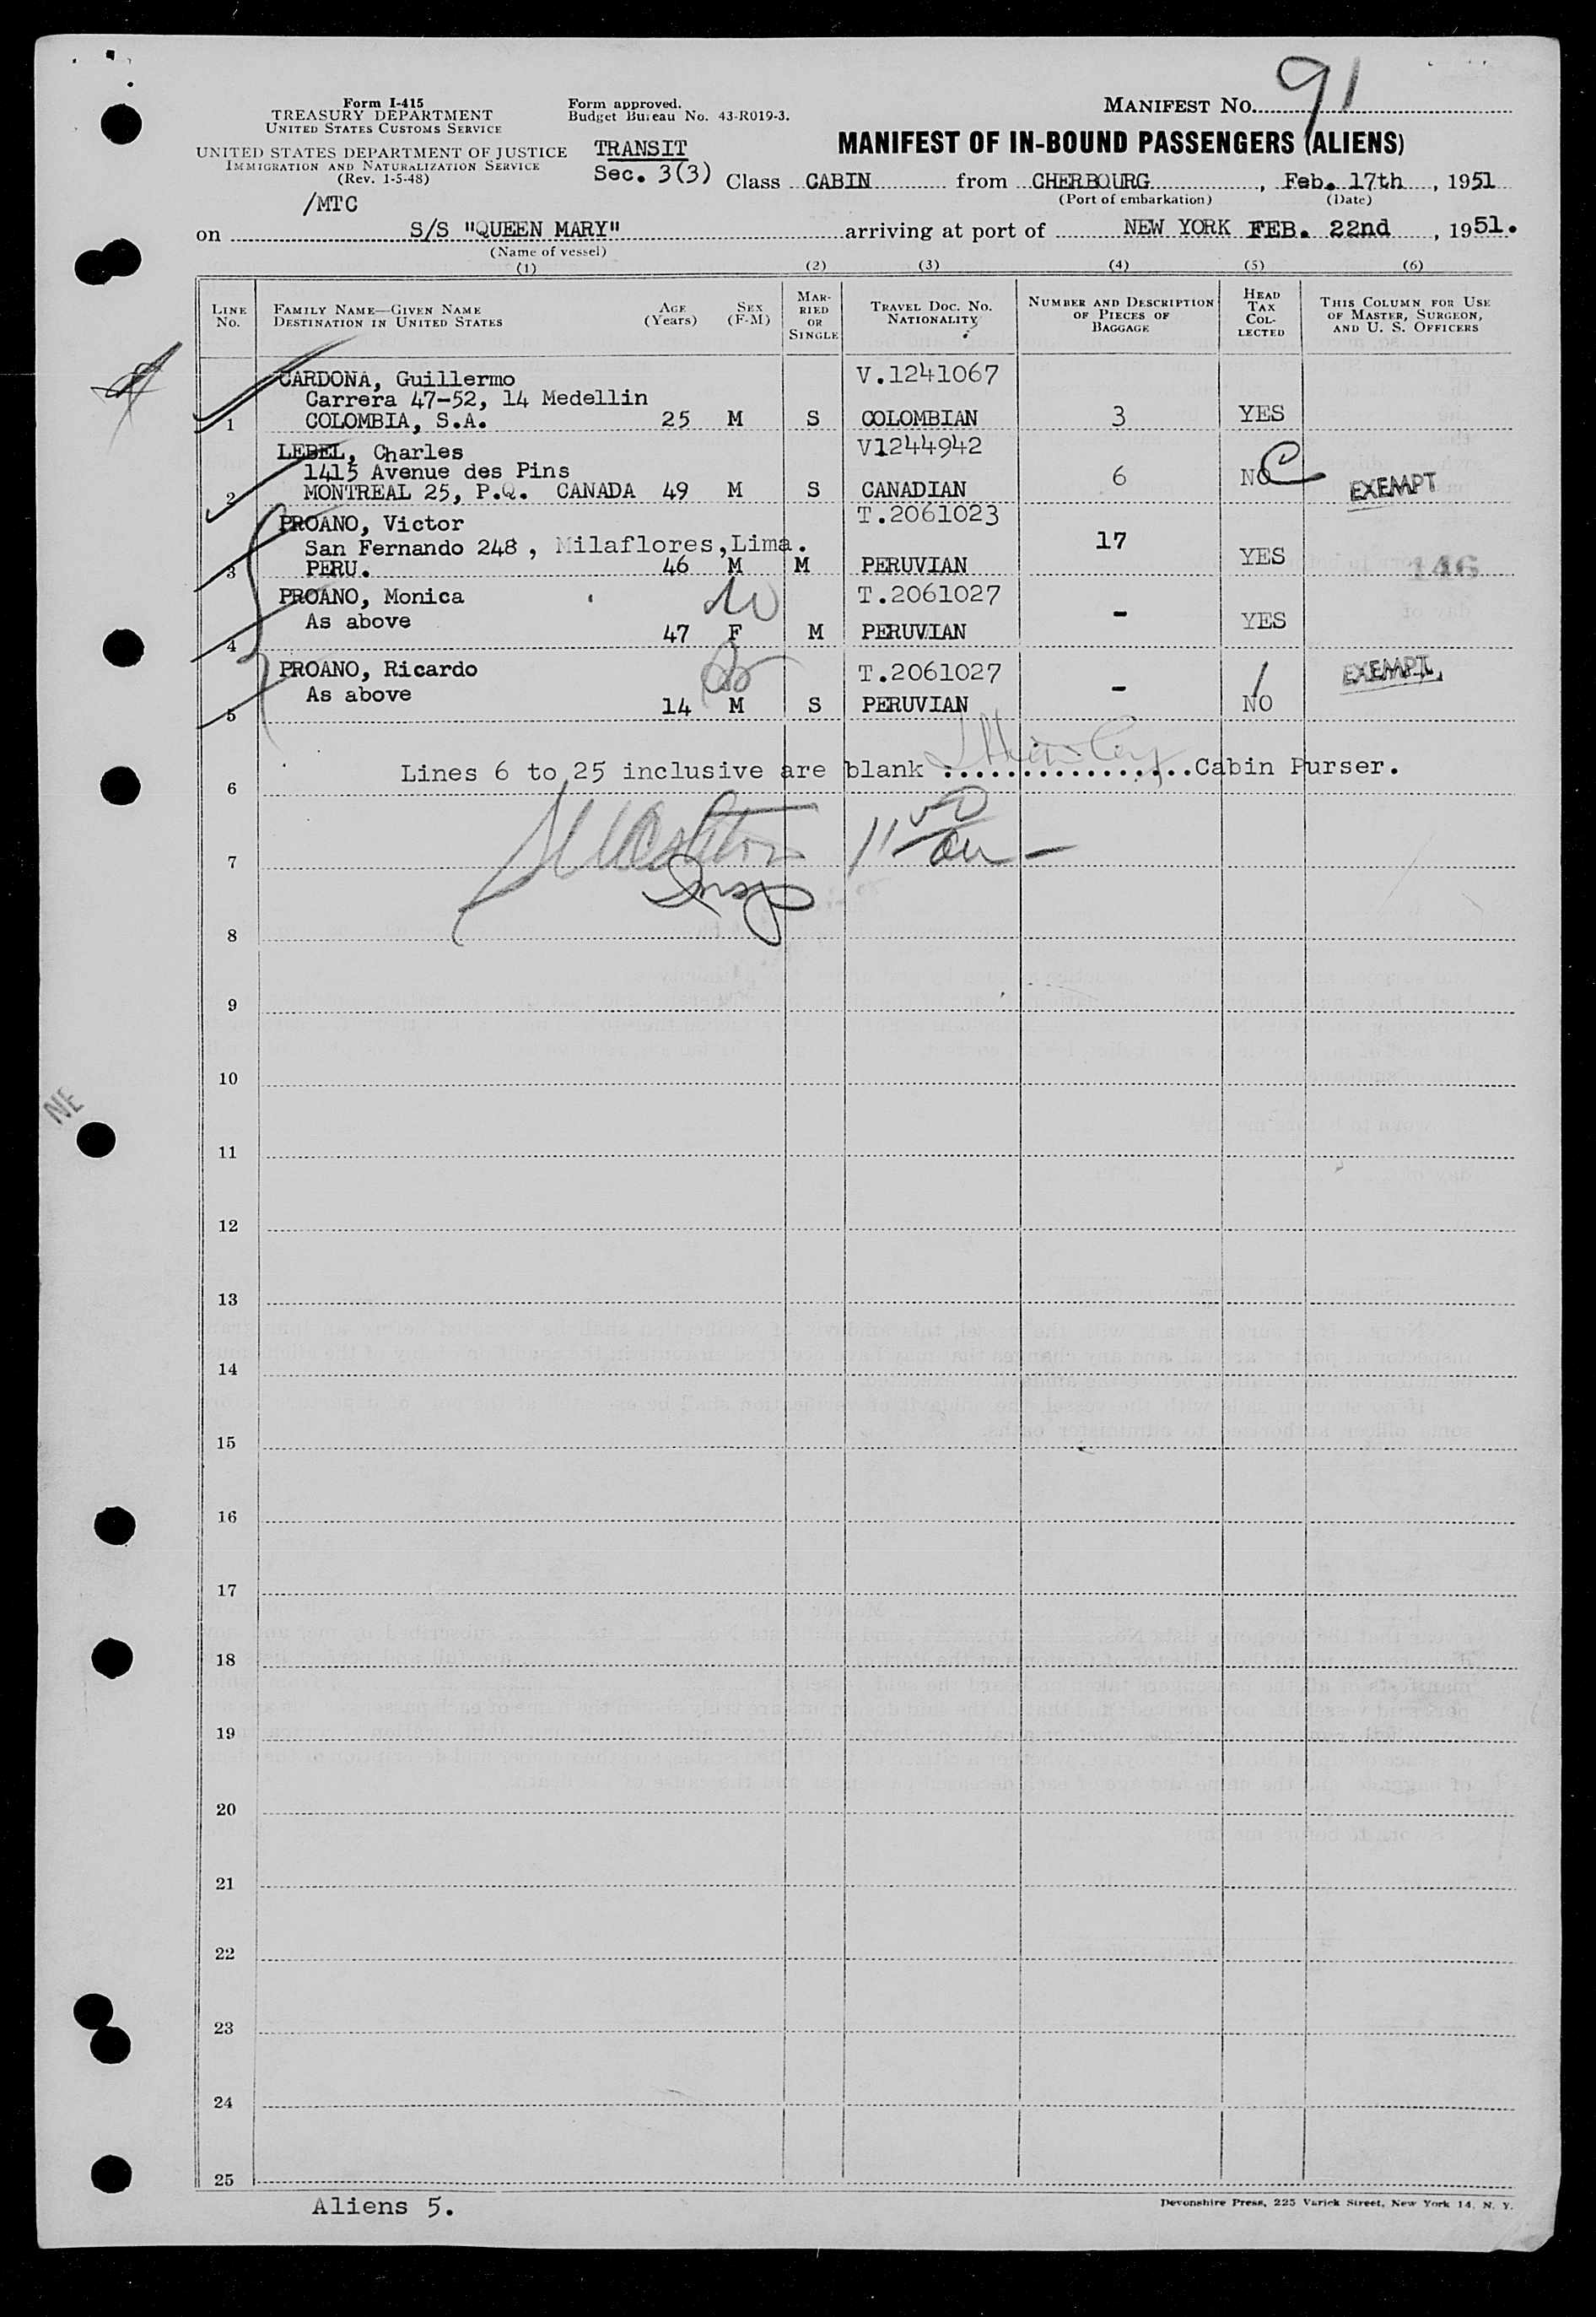 Form I-415
TREASURY DEPARTMENT
UNITED STATES CUSTOMS SERVICE
UNITED STATES DEPARTMENT OF JUSTICE
IMMIGRATION AND NATURALIZATION SERVICE
(Rev. 1-5-48)
/MTC
Form approved.
Budget Bureau No. 43-R019-3.
TRANSIT
Sec. 3(3)
MANIFEST NO. 91
MANIFEST OF IN-BOUND PASSENGERS (ALIENS)
Class CABIN from CHERBOURG, Feb. 17th, 1951
(Port of embarkation) (Date)
on S/S "QUEEN MARY" arriving at port of NEW YORK FEB. 22nd, 1951.
(Name of vessel)
(1) (2) (3) (4) (5) (6)
LINE NO. FAMILY NAME—GIVEN NAME DESTINATION IN UNITED STATES AGE (Years) SEX (F-M) MARRIED OR SINGLE TRAVEL DOC. NO. NATIONALITY NUMBER AND DESCRIPTION OF PIECES OF BAGGAGE HEAD TAX COLLECTED THIS COLUMN FOR USE OF MASTER, SURGEON, AND U. S. OFFICERS
CARDONA, Guillermo V.1241067
Carrera 47-52, 14 Medellin
1 COLOMBIA, S.A. 25 M S COLOMBIAN 3 YES
LEBEL, Charles V1244942
1415 Avenue des Pins
2 MONTREAL 25, P.Q. CANADA 49 M S CANADIAN 6 NO C EXEMPT
PROANO, Victor T.2061023
San Fernando 248, Milaflores,Lima. 17
3 PERU. 46 M M PERUVIAN YES 146
PROANO, Monica T.2061027
As above
4 47 F M PERUVIAN - YES
PROANO, Ricardo T.2061027 EXEMPT
As above
5 14 M S PERUVIAN - NO
Lines 6 to 25 inclusive are blank ................Cabin Purser.
6
7
8
9
10
NE
11
12
13
14
15
16
17
18
19
20
21
22
23
24
25
Aliens 5.
Devonshire Press, 225 Varick Street, New York 14, N. Y.